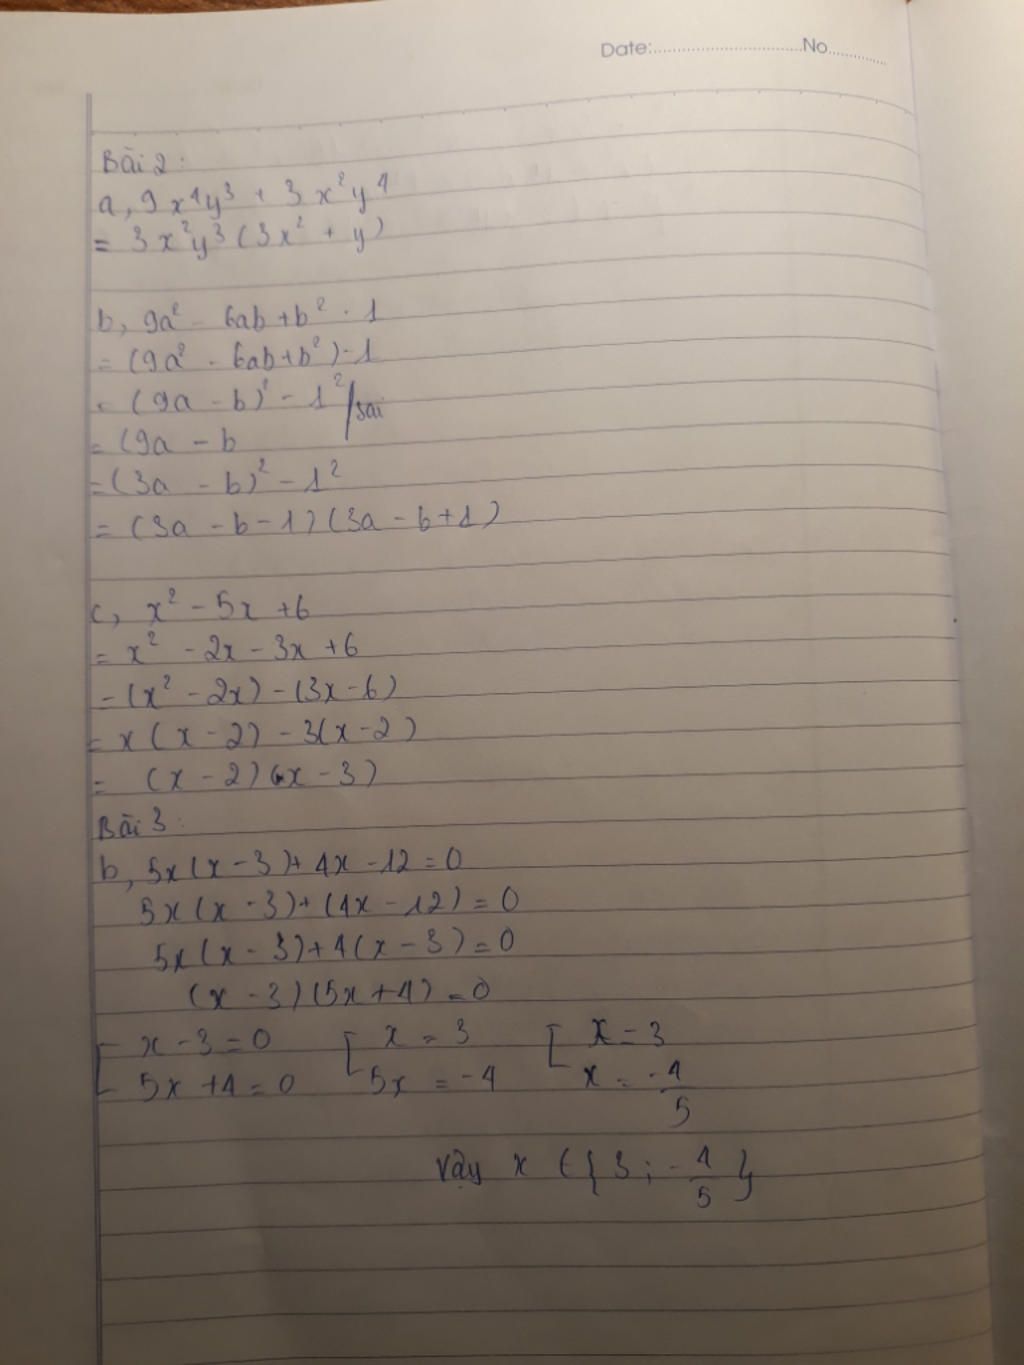 Date:..............................No............
Bài 2:
a, 9x⁴y³ + 3x²y⁴
= 3x²y³(3x² + y)
b, 9a² - 6ab + b² - 1
= (9a² - 6ab + b²) - 1
= (9a - b)² - 1² / sai
= (9a - b
= (3a - b)² - 1²
= (3a - b - 1)(3a - b + 1)
c, x² - 5x + 6
= x² - 2x - 3x + 6
= (x² - 2x) - (3x - 6)
= x(x - 2) - 3(x - 2)
= (x - 2)(x - 3)
Bài 3:
b, 5x(x - 3) + 4x - 12 = 0
5x(x - 3) + (4x - 12) = 0
5x(x - 3) + 4(x - 3) = 0
(x - 3)(5x + 4) = 0
[ x - 3 = 0 [ x = 3 [ x = 3
5x + 4 = 0 5x = -4 x = -4/5
Vậy x ∈ {3; -4/5}